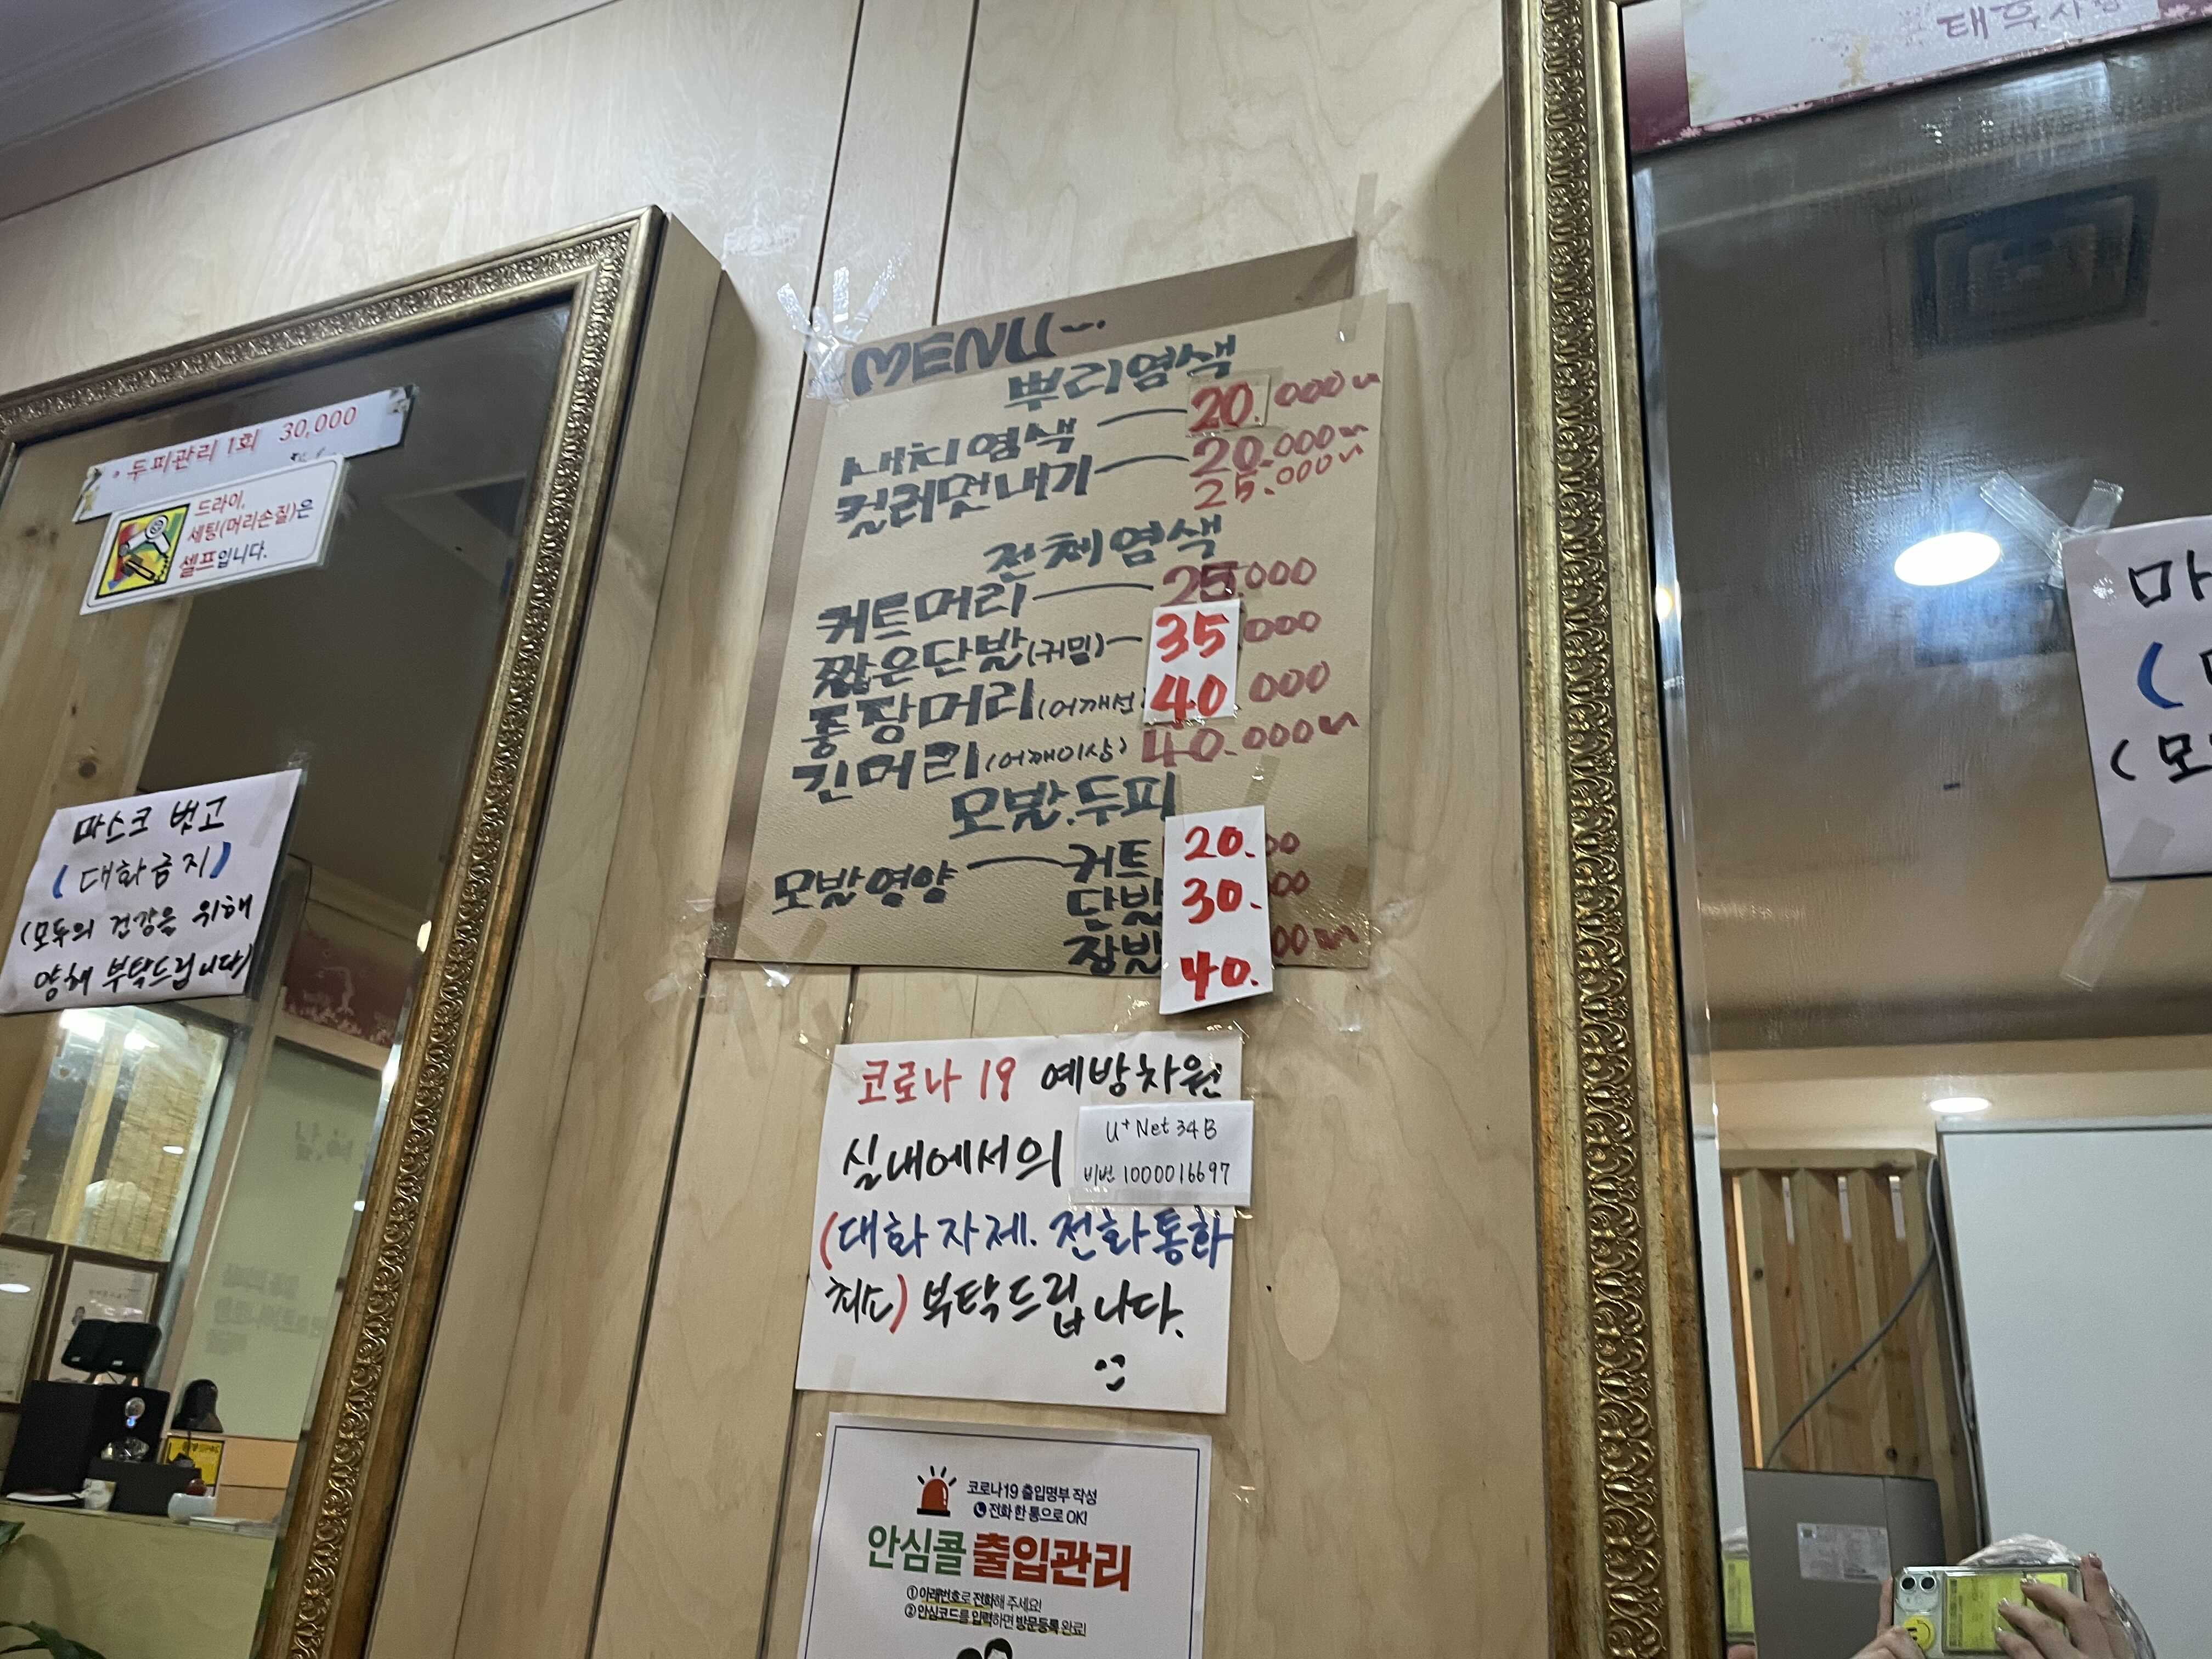 · 두피관리 1회 30,000
드라이,
세팅(머리손질)은
셀프입니다.
마스크 벗고
(대화금지)
(모두의 건강을 위해
양해 부탁드립니다)
MENU~
뿌리염색
새치염색 — 20.000~
컬러멋내기 — 20.000~
25.000~
전체염색
커트머리 — 25.000
짧은단발(귀밑) — 35.000
중장머리(어깨선) 40.000
긴머리(어깨이상) 40.000~
모발.두피
모발영양 — 커트 20.00
단발 30.00
장발 40.00~
코로나 19 예방차원
실내에서의
U+Net34B
비번 1000016697
(대화자제. 전화통화
최소) 부탁드립니다.
코로나19 출입명부 작성
전화 한 통으로 OK!
안심콜 출입관리
① 아래번호로 전화해 주세요!
② 안심코드를 입력하면 방문등록 완료!
마
(
(모